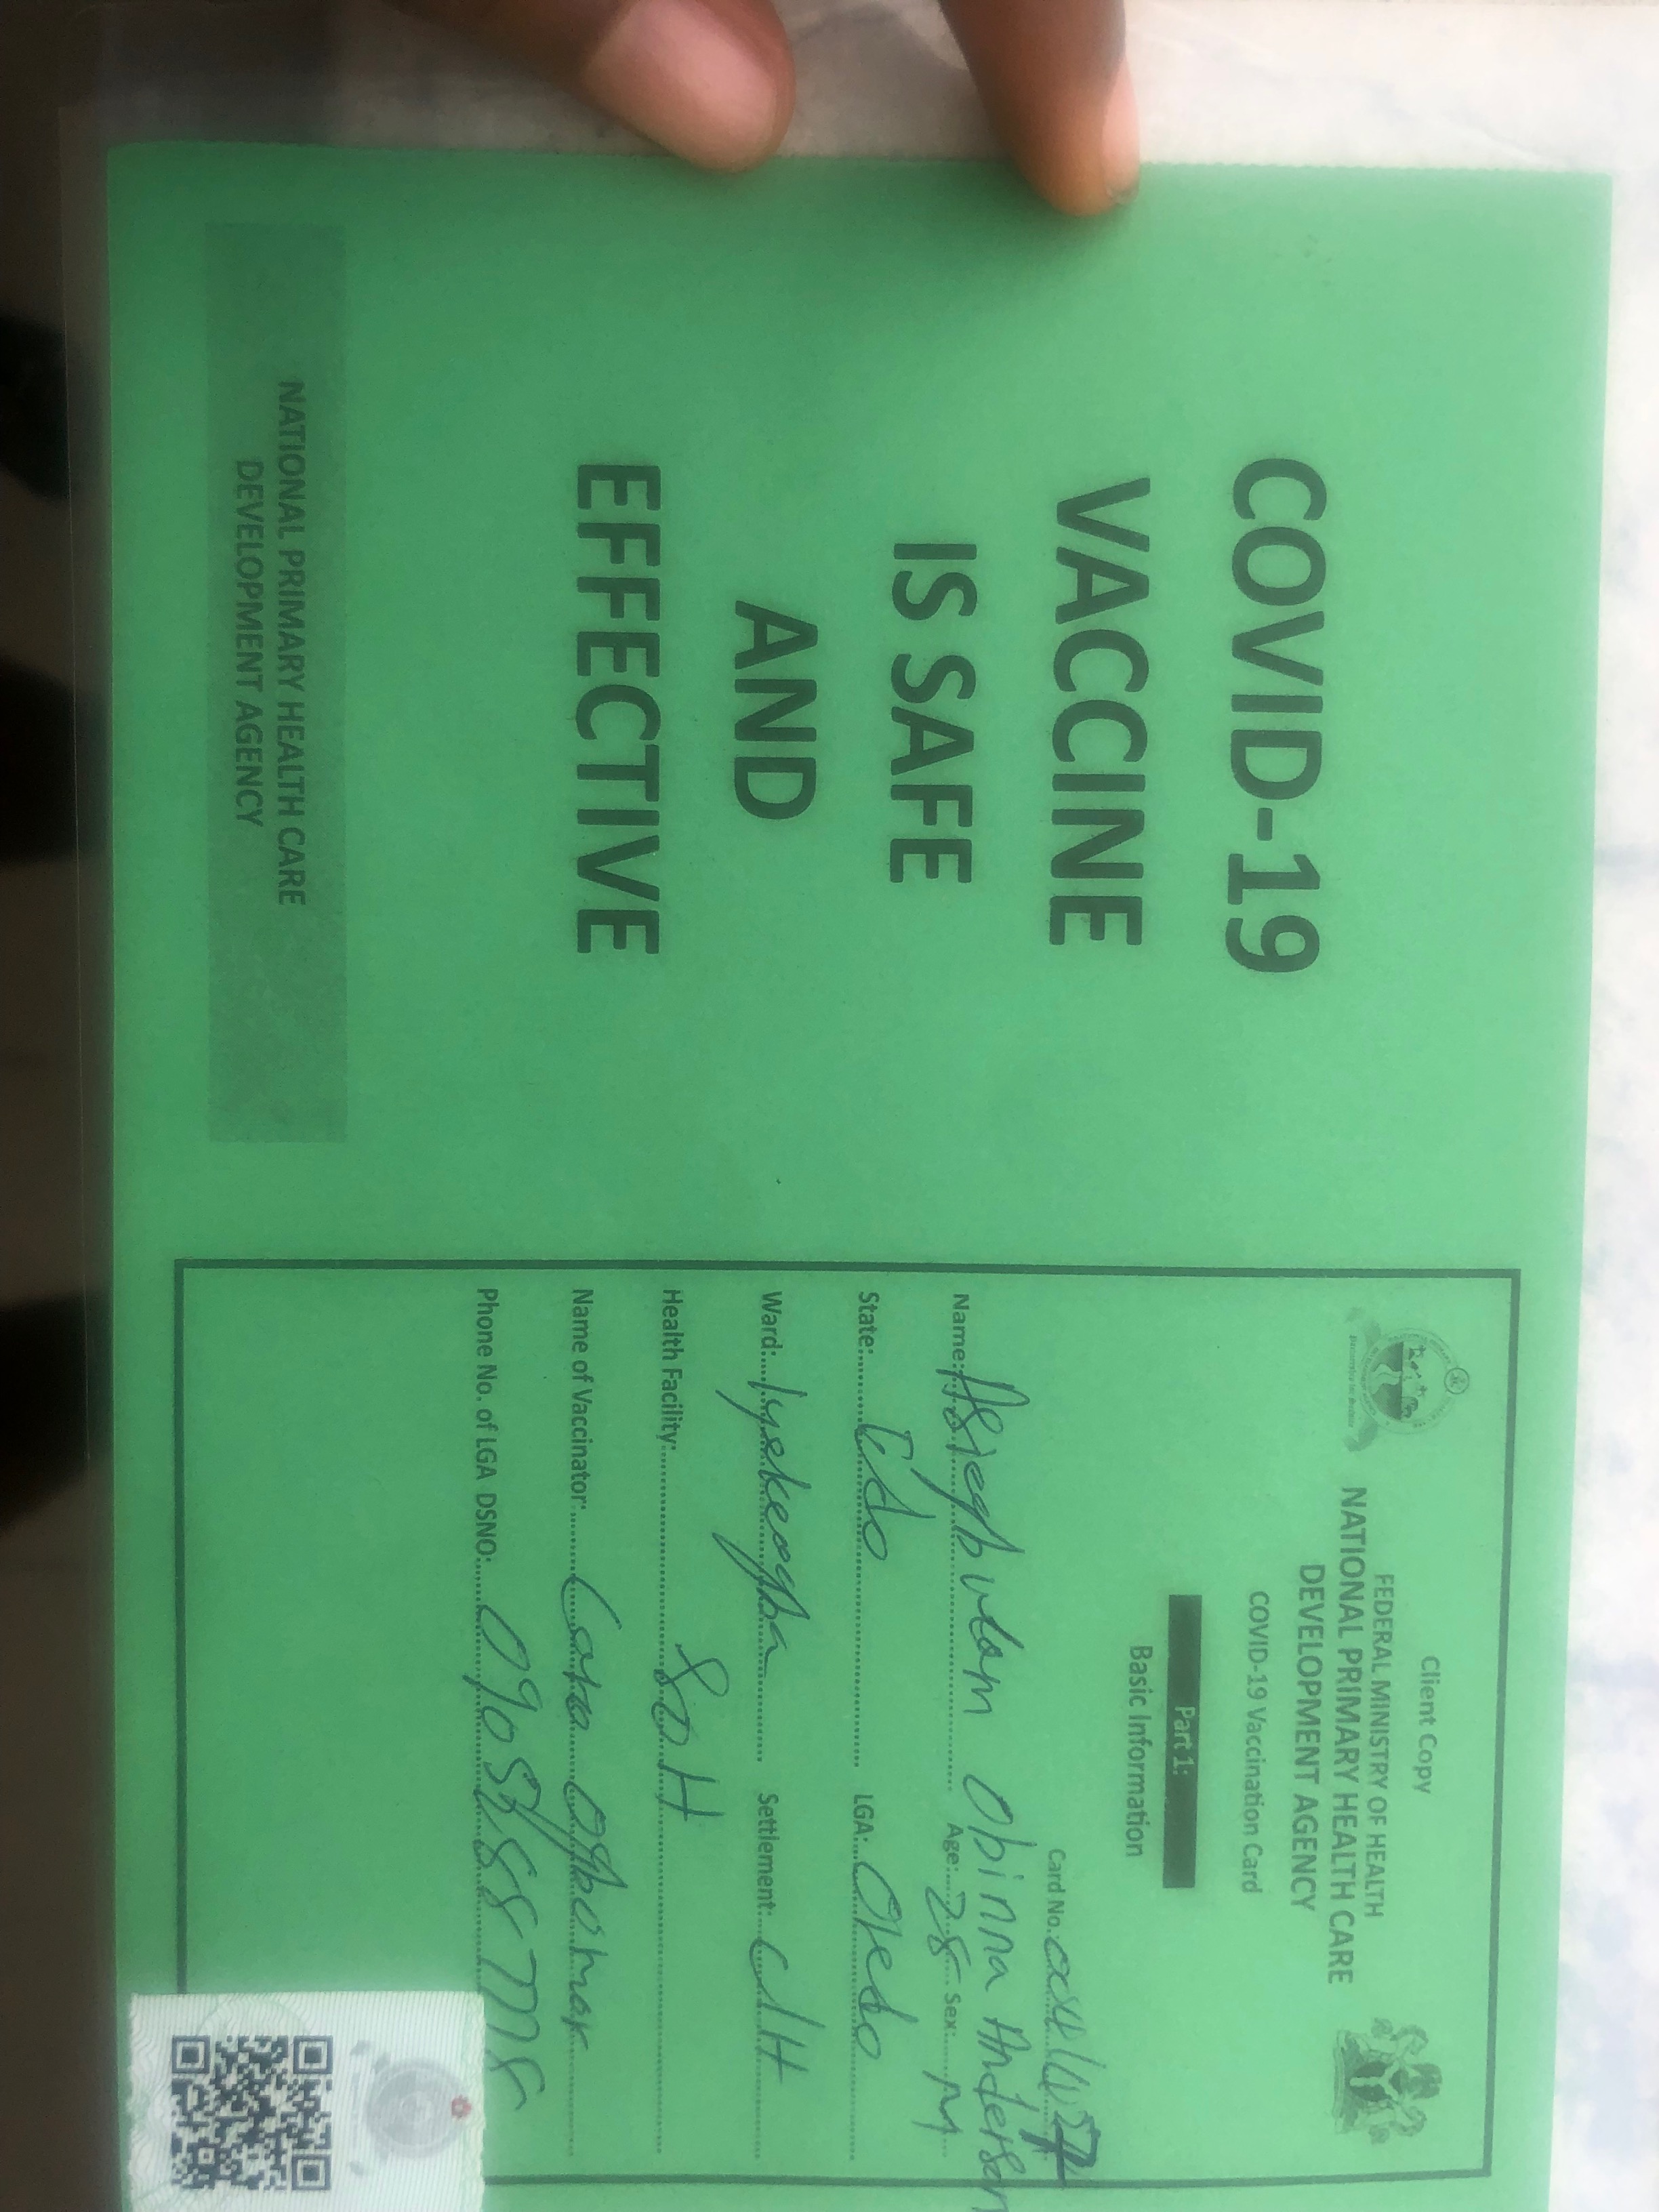 COVID-19
VACCINE
IS SAFE
AND
EFFECTIVE
NATIONAL PRIMARY HEALTH CARE
DEVELOPMENT AGENCY
Client Copy
FEDERAL MINISTRY OF HEALTH
NATIONAL PRIMARY HEALTH CARE
DEVELOPMENT AGENCY
COVID-19 Vaccination Card
Part 1:
Basic Information
Card No.:
Name: Obinna Anderson Age: 28 Sex: M
State: Edo LGA: Oredo
Ward: Iyekeogba Settlement:
Health Facility:
Name of Vaccinator:
Phone No. of LGA DSNO: